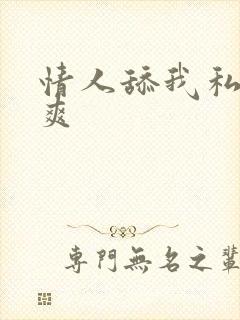 情人舔我私
爽
專門無名之輩